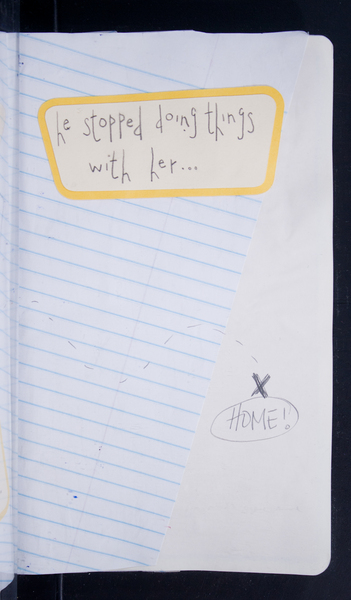 he stopped doing things
with her...
X
HOME!!